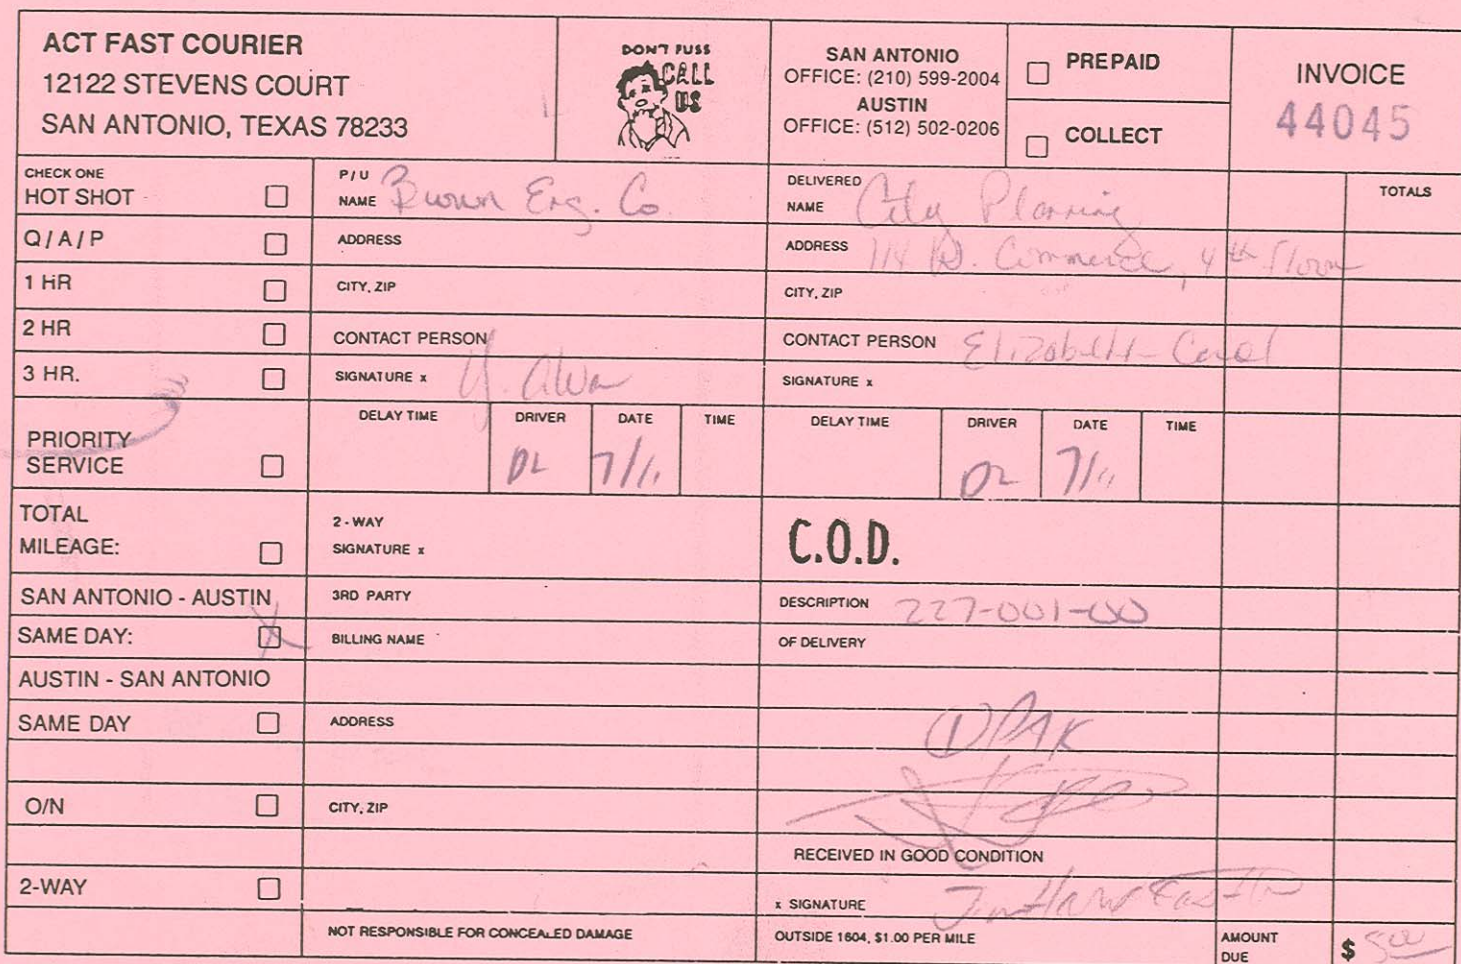 ACT FAST COURIER
12122 STEVENS COURT
SAN ANTONIO, TEXAS 78233
DON'T FUSS
CALL
US
SAN ANTONIO
OFFICE: (210) 599-2004
AUSTIN
OFFICE: (512) 502-0206
PREPAID
COLLECT
INVOICE
44045
CHECK ONE
HOT SHOT
Q/A/P
1 HR
2 HR
3 HR.
PRIORITY
SERVICE
TOTAL
MILEAGE:
SAN ANTONIO - AUSTIN
SAME DAY:
AUSTIN - SAN ANTONIO
SAME DAY
O/N
2-WAY
P/U
NAME Brown Eng. Co.
ADDRESS
CITY, ZIP
CONTACT PERSON
SIGNATURE x
DELAY TIME DRIVER DATE TIME
DL 7/11
2-WAY
SIGNATURE x
3RD PARTY
BILLING NAME
ADDRESS
CITY, ZIP
NOT RESPONSIBLE FOR CONCEALED DAMAGE
DELIVERED
NAME City Planning
ADDRESS 114 W. Commerce, 4th Floor
CITY, ZIP
CONTACT PERSON Elizabeth Carol
SIGNATURE x
DELAY TIME DRIVER DATE TIME
DL 7/11
C.O.D.
DESCRIPTION 227-001-00
OF DELIVERY
1 PAK
RECEIVED IN GOOD CONDITION
x SIGNATURE
OUTSIDE 1604, $1.00 PER MILE
TOTALS
AMOUNT
DUE
$ 500